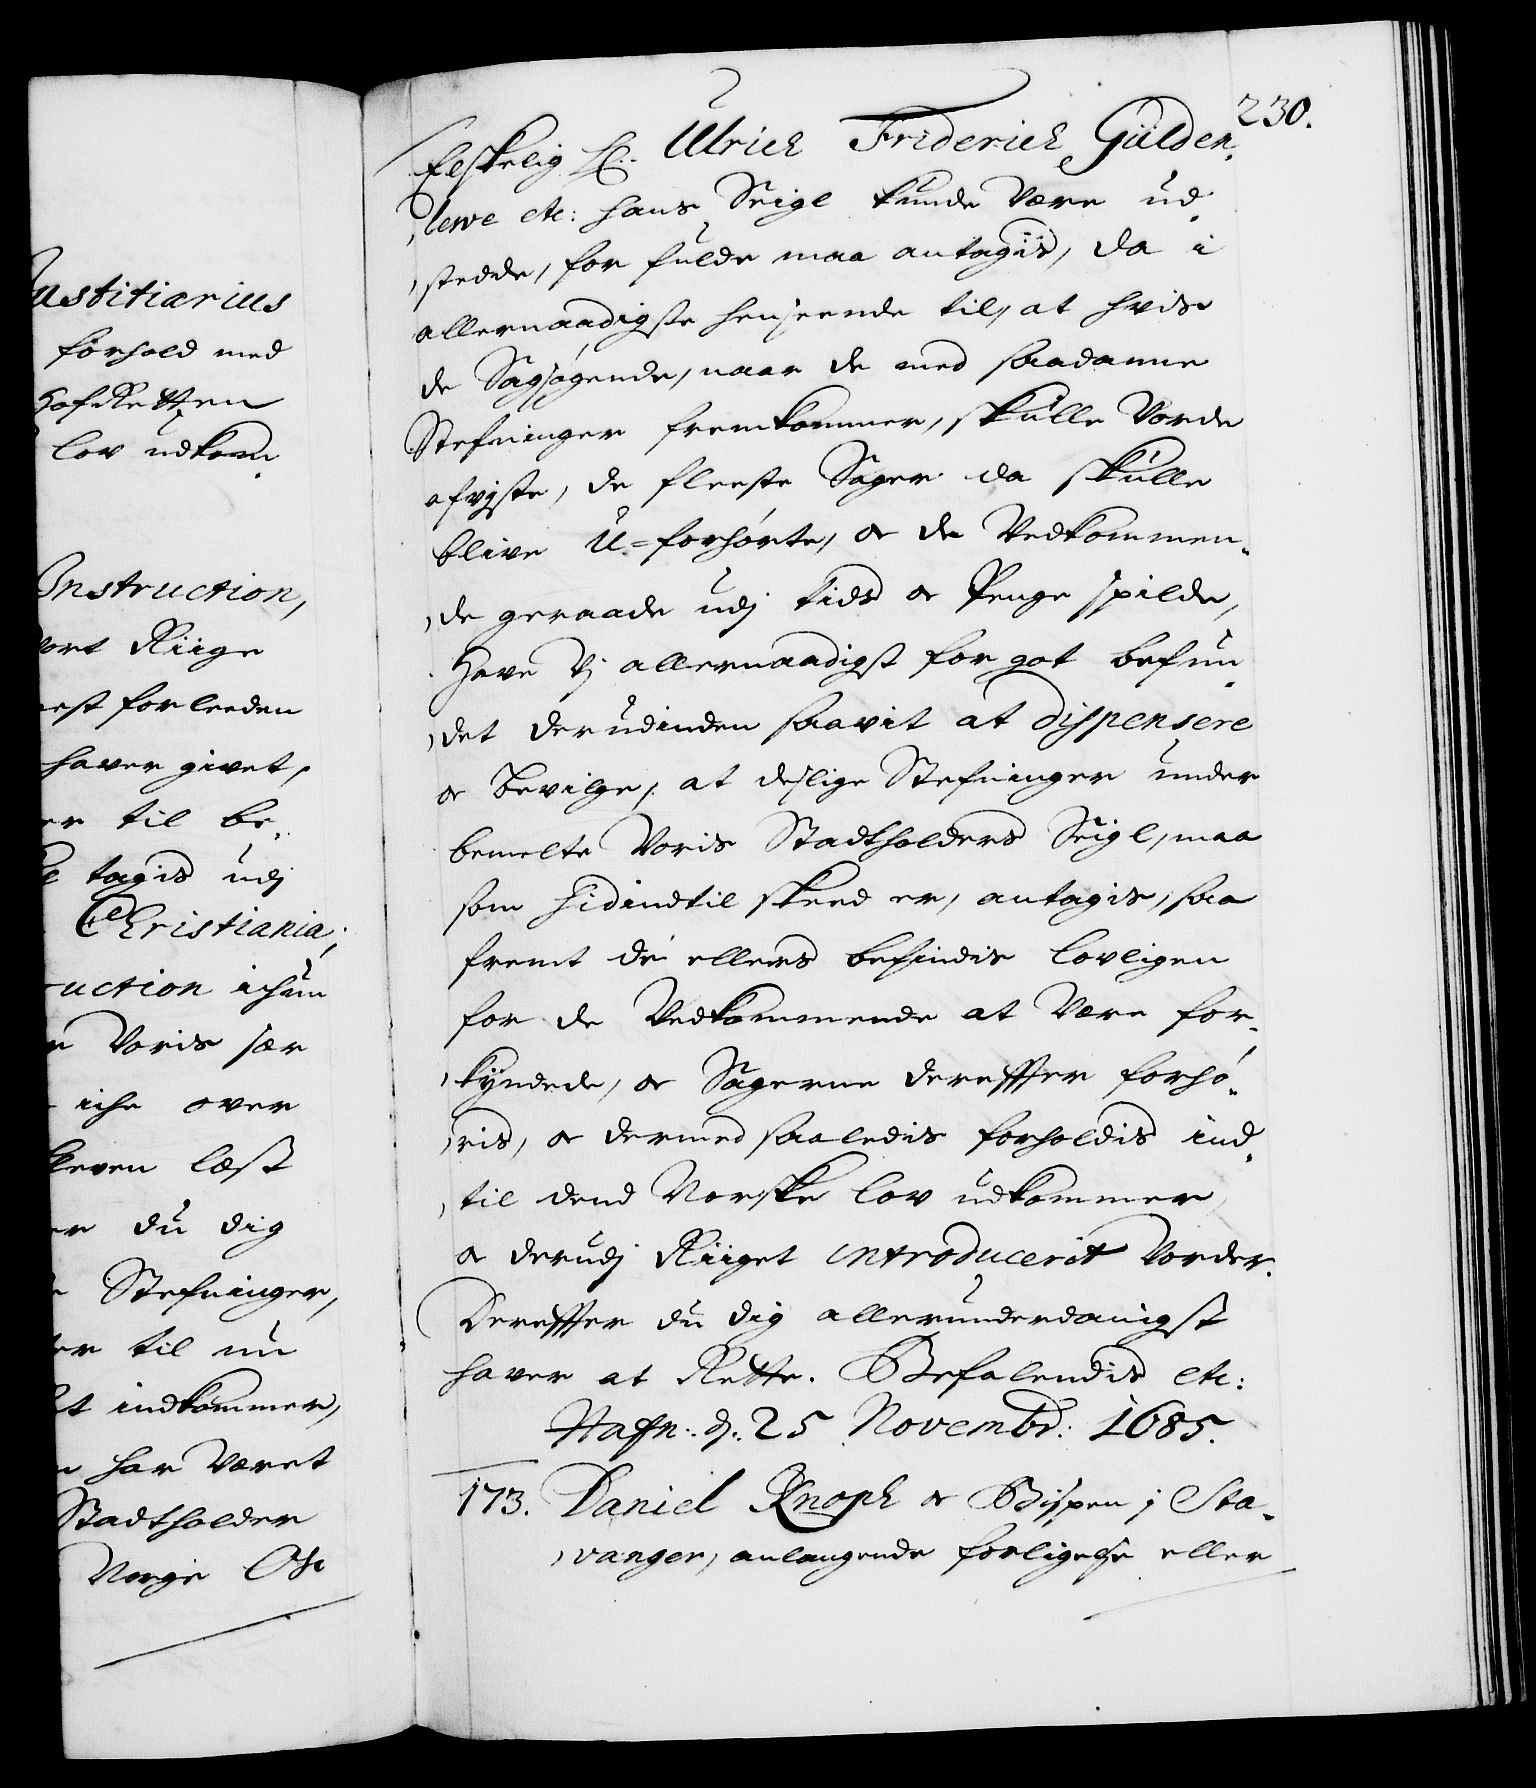 Justitiarius
forhold med
HofRetten
lov udkom
Instruction,
vort Riige
nest forleeden
haver givet,
er til be-
tagis udj
Christiania,
ruction ichun
Voris sær
iche over
kreven læst
er du dig
Stefninger,
ter til nu
indkommer,
har Været
Stadtholder
Norge Oc
230.
Elskelig H: Ulrich Friderich Gülden-
lewe etc: hans Seigl kunde Være ud-
stedde, for fulde maa antagis, da i
allernaadigste henseende til, at hvis
de Sagsøgende, naar de med saadanne
Stefninger fremkommer, skulle Vorde
afvjste, de fleeste Sager da skulle
blive U-forhørte, oc de Vedkommen-
de geraade udj tids oc Penge spilde,
Have Vj allernaadigst for got befun-
det derudinden saavit at dispensere
oc Bevilge, at deslige Stefninger under
bemelte Voris Stadtholders Seigl, maa
som hidindtil skeed er, antagis, saa
fremt de ellers befindis lovligen
for de Vedkommende at Være for-
kyndede, oc Sagerne dereffter forhø-
ris, oc dermed saaledis forholdis ind-
til dend Norske lov udkommer,
oc derudj Riiget introducerit Vorder.
Dereffter du dig allerunderdanigst
haver at Rette. Befalendis etc:
Hafn: d. 25 Novembr: 1685.
173. Daniel Knoph oc Bispen j Sta-
vanger, anlangende forligelse eller